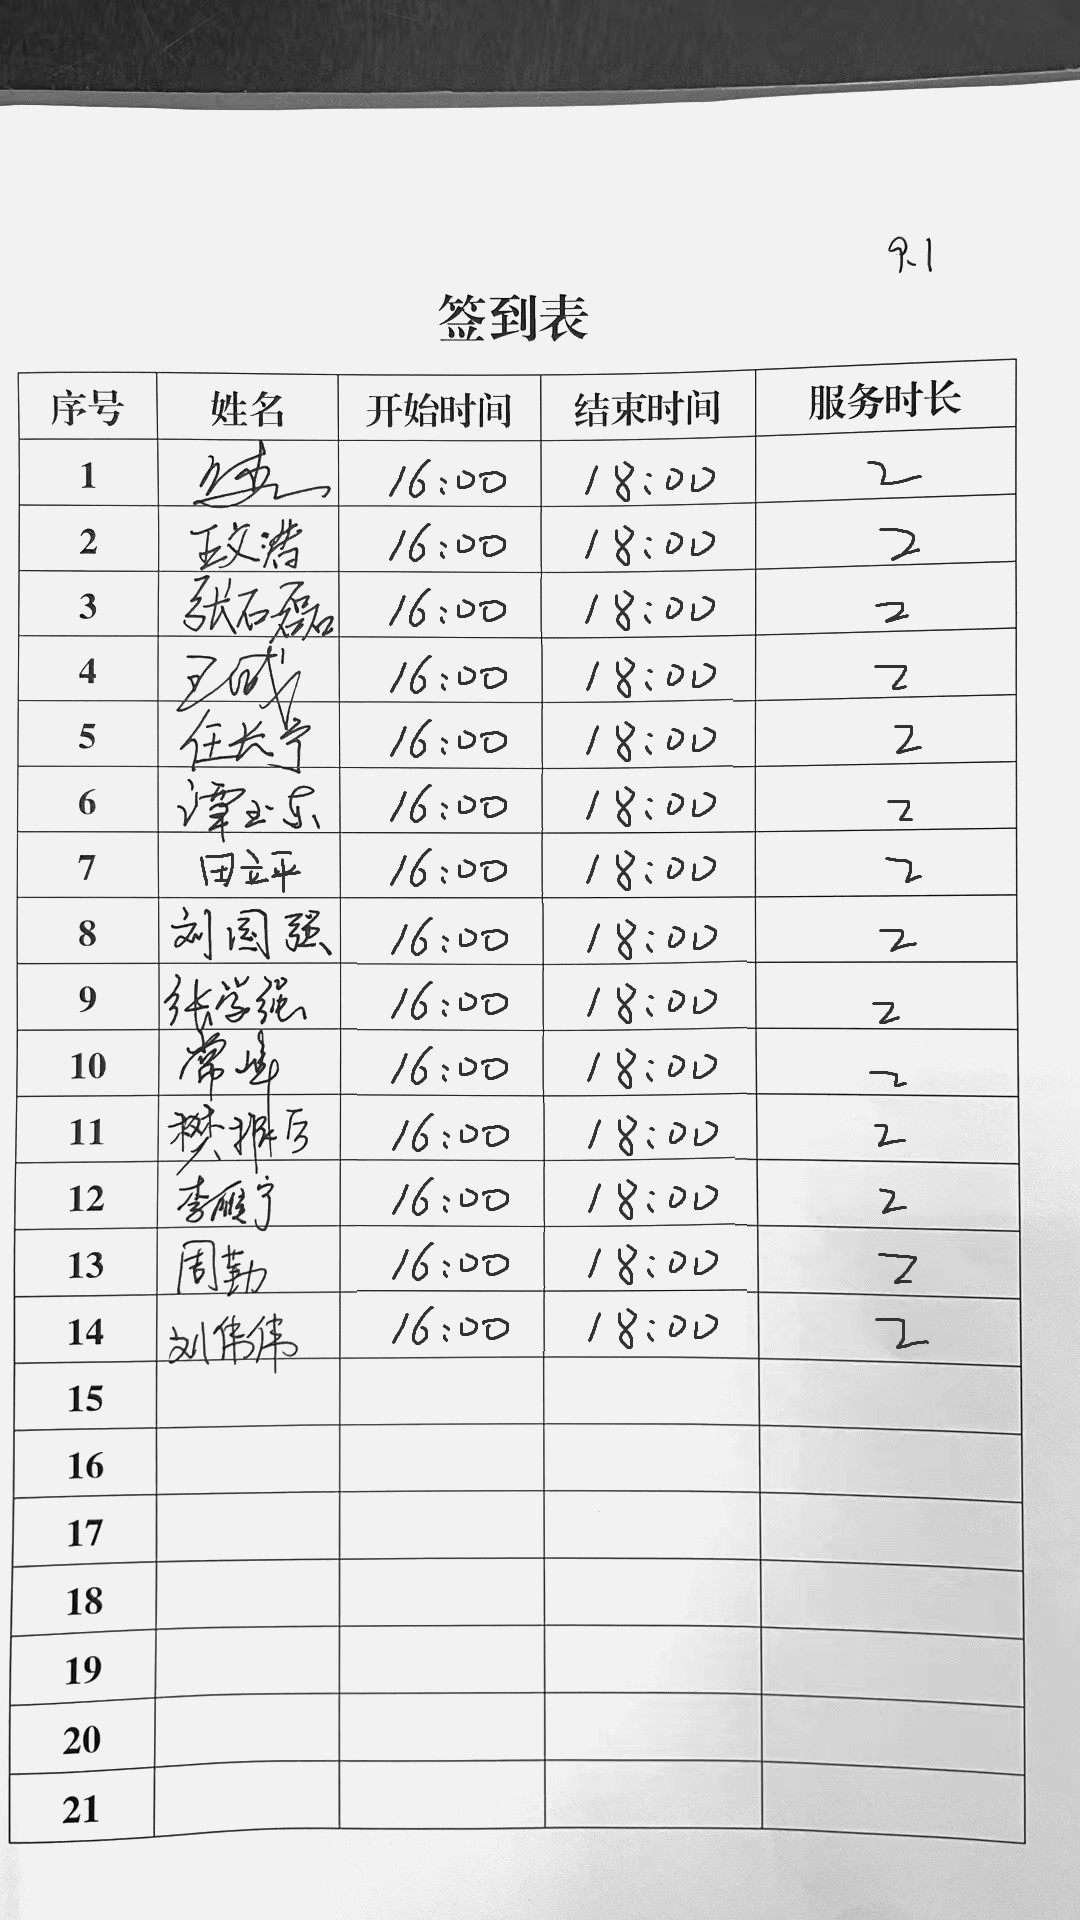 9.1
签到表
序号 姓名 开始时间 结束时间 服务时长
1 16:00 18:00 2
2 王文涛 16:00 18:00 2
3 张石磊 16:00 18:00 2
4 王成 16:00 18:00 2
5 任长宁 16:00 18:00 2
6 谭玉东 16:00 18:00 2
7 田立平 16:00 18:00 2
8 刘国强 16:00 18:00 2
9 张学强 16:00 18:00 2
10 常 16:00 18:00 2
11 樊 16:00 18:00 2
12 李雁宁 16:00 18:00 2
13 周勤 16:00 18:00 2
14 刘伟伟 16:00 18:00 2
15
16
17
18
19
20
21